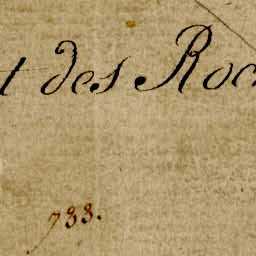 t des Roc
733.